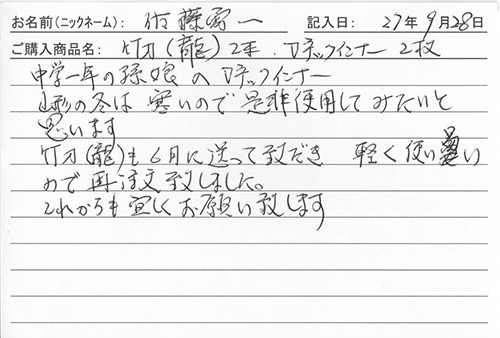 お名前(ニックネーム): 佐藤 一 記入日: 27年9月28日
ご購入商品名: 竹刀(龍)2本.マチックインナー 2枚
中学一年の孫娘へマチックインナー
山形の冬は寒いので是非使用してみたいと
思います
竹刀(龍)も6月に送って致だき 軽く使い易い
ので再注文致しました。
これからも宜しくお願い致します